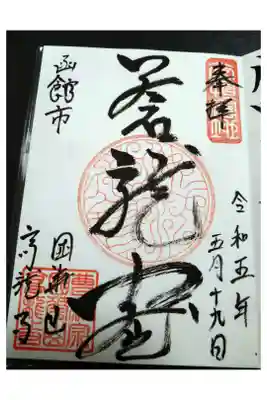 奉拝
令和五年
五月十九日
蒼龍窟
函館市
国華山
高龍寺